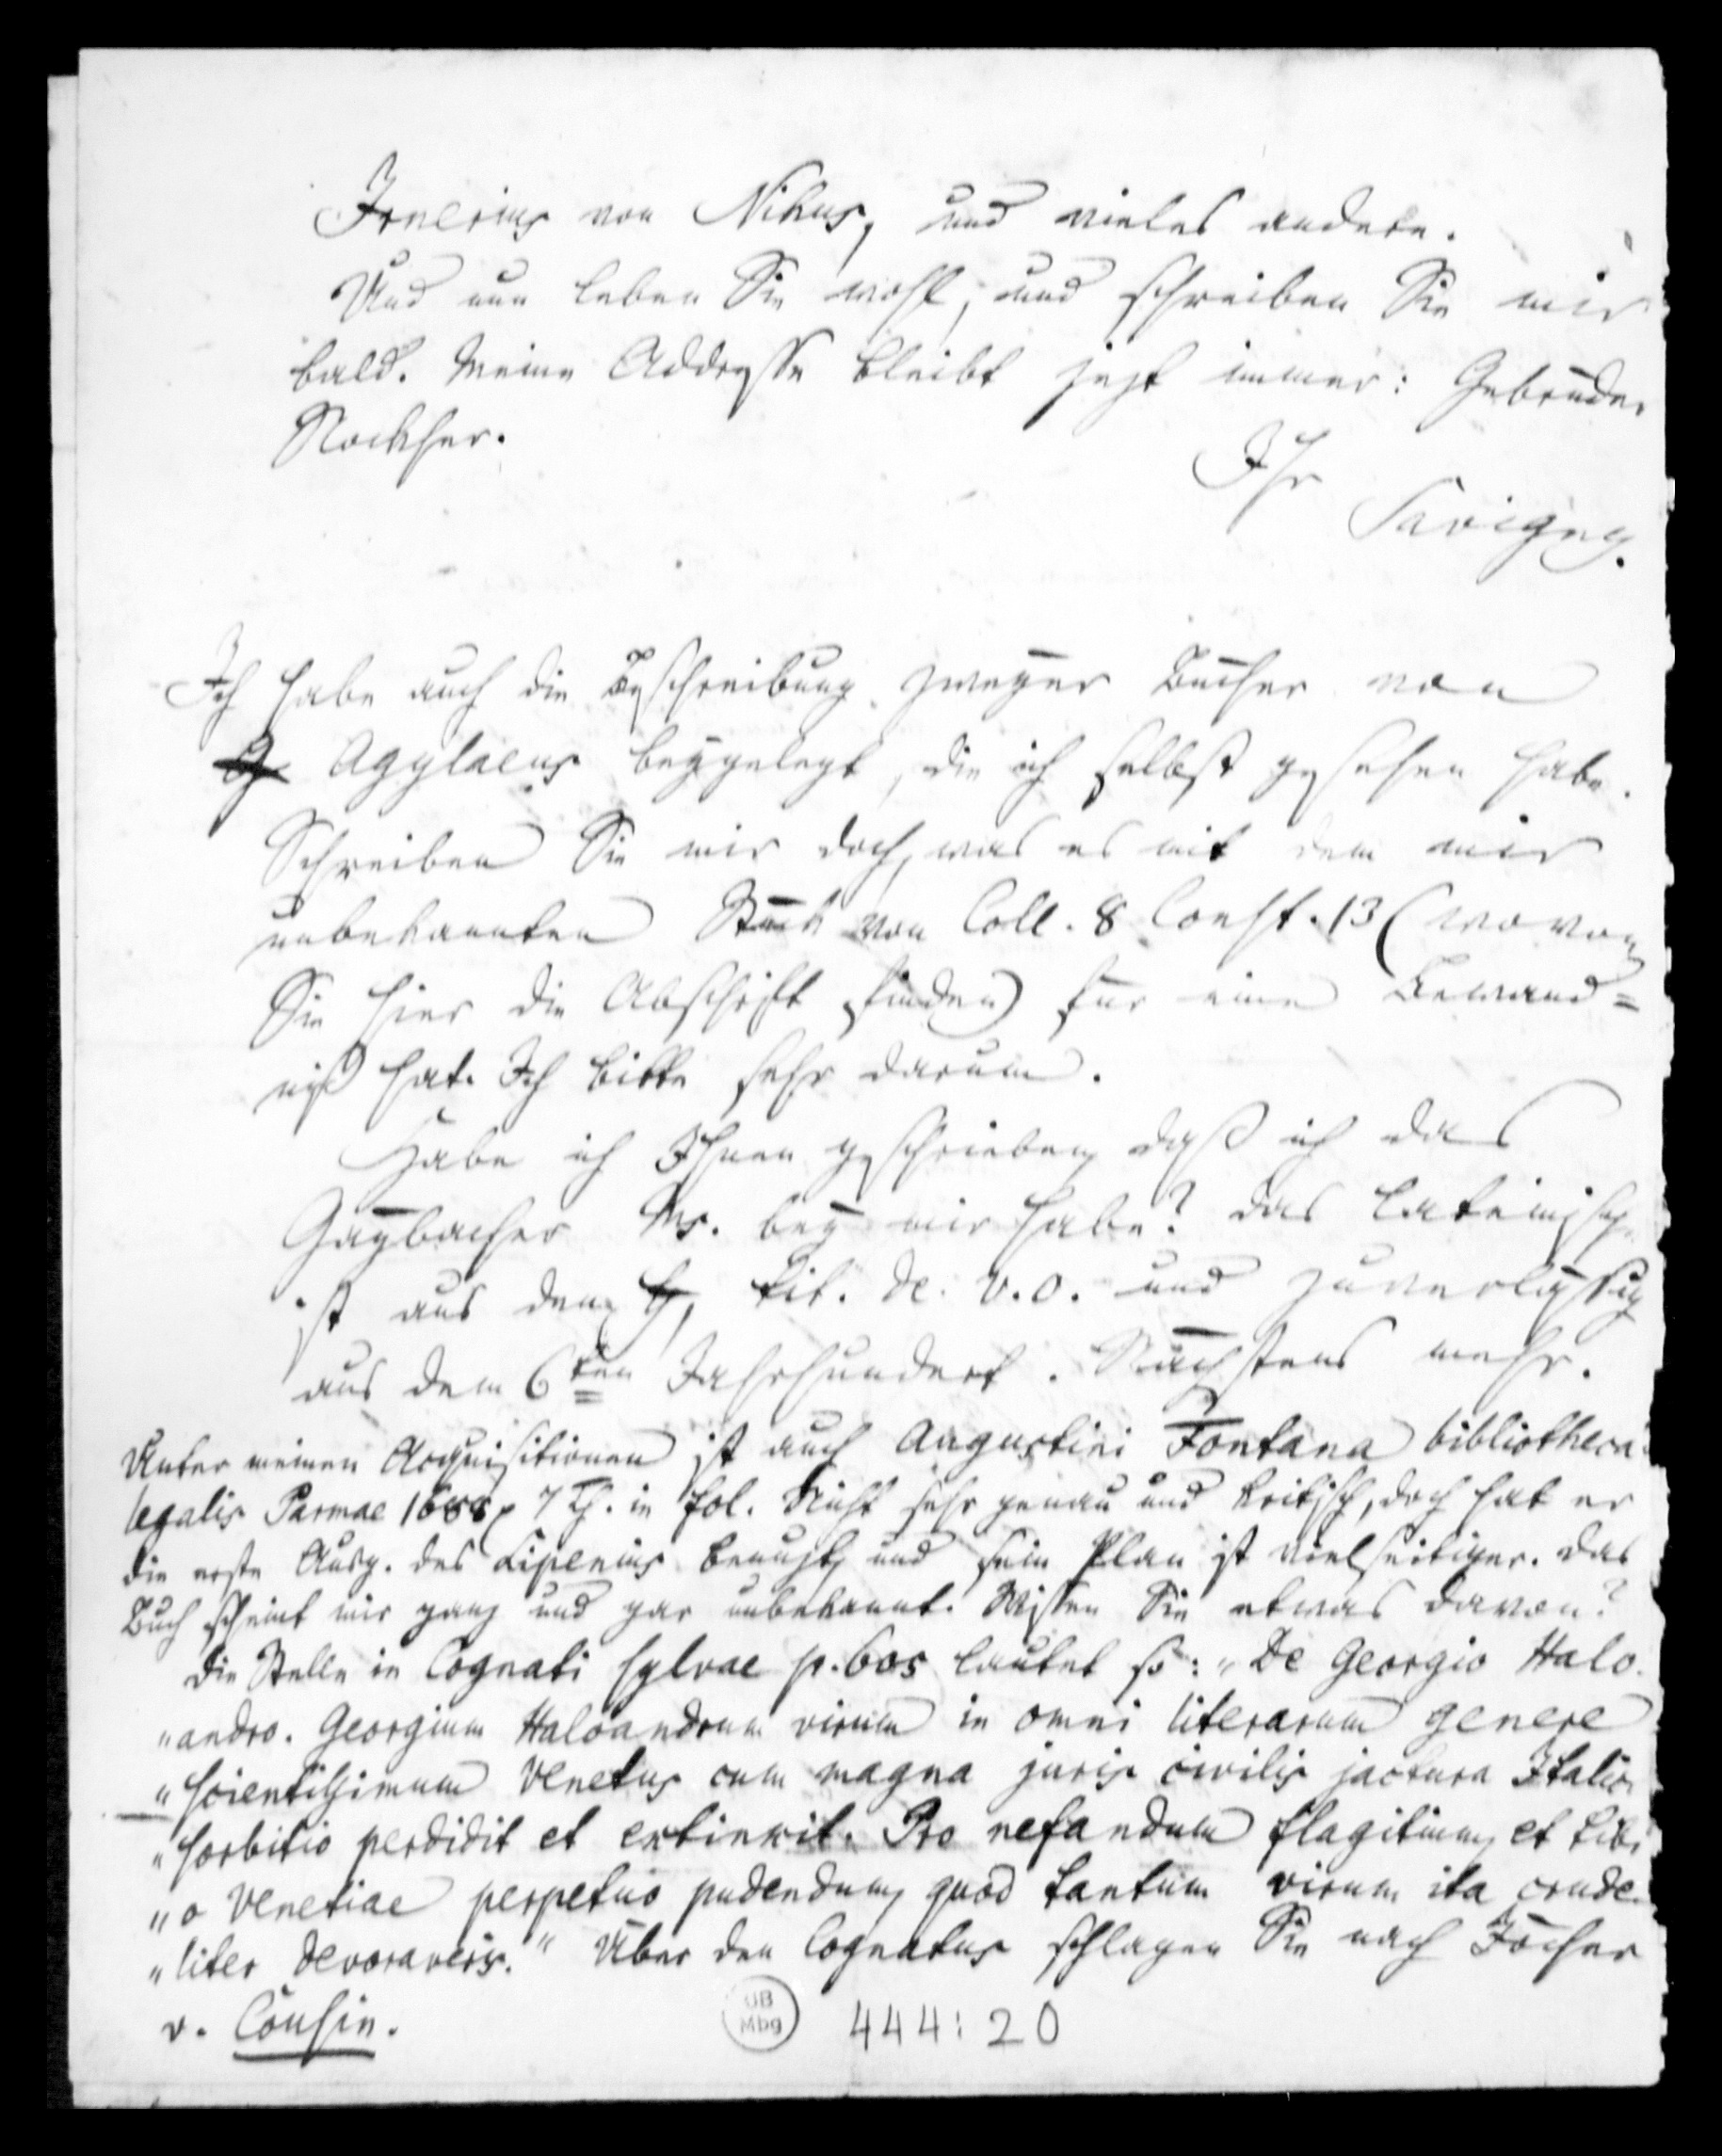 Irnerius von Nihus, und vieles andere.
Und nun leben Sie wohl, und schreiben Sie mir
bald. Meine Addresse bleibt jezt immer: Gebrüder
Nockher.
Ihr
Savigny.
Ich habe auch die Beschreibung zweyer Bücher von
Agylaeus beygelegt, die ich selbst gesehen habe.
Schreiben Sie mir doch, was es mit dem mir
unbekannten Stück von Coll. 8 Const. 13 (wovon
Sie hier die Abschrift finden) für eine Bewand=
niß hat. Ich bitte sehr darum.
Habe ich Ihnen geschrieben, daß ich das
Gaybacher Ms. bey mir habe? Das Lateinische
ist aus dem tit. de V.O. und zuverlässig
aus dem 6ten Jahrhundert. Nächstens mehr.
Unter meinen Acquisitionen ist auch Augustini Fontana bibliotheca
legalis Parmae 1688, 7 Th. in fol. Nicht sehr genau und kritisch, doch hat er
die erste Ausg. des Lipenius benuzt, und sein Plan ist vielseitiger. Das
Buch scheint mir ganz und gar unbekannt. Wissen Sie etwas davon?
Die Stelle in Cognati sylvae p. 605 lautet so: „De Georgio Halo
„andro. Georgium Haloandrum virum in omni literarum genere
„scientissimum Venetus cum magna juris civilis jactura Italic
„sorbitio perdidit et extinxit. Pro nefandum flagitium, et tibi
„o Venetiae perpetuo pudendum, quod tantum virum ita crude
„liter devoraveris." Über den Cognatus schlagen Sie nach Jöcher
v. Cousin.
UB
Mbg
444:20